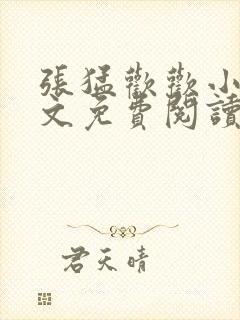 張猛歡歡小
文免費閱讀
君天晴